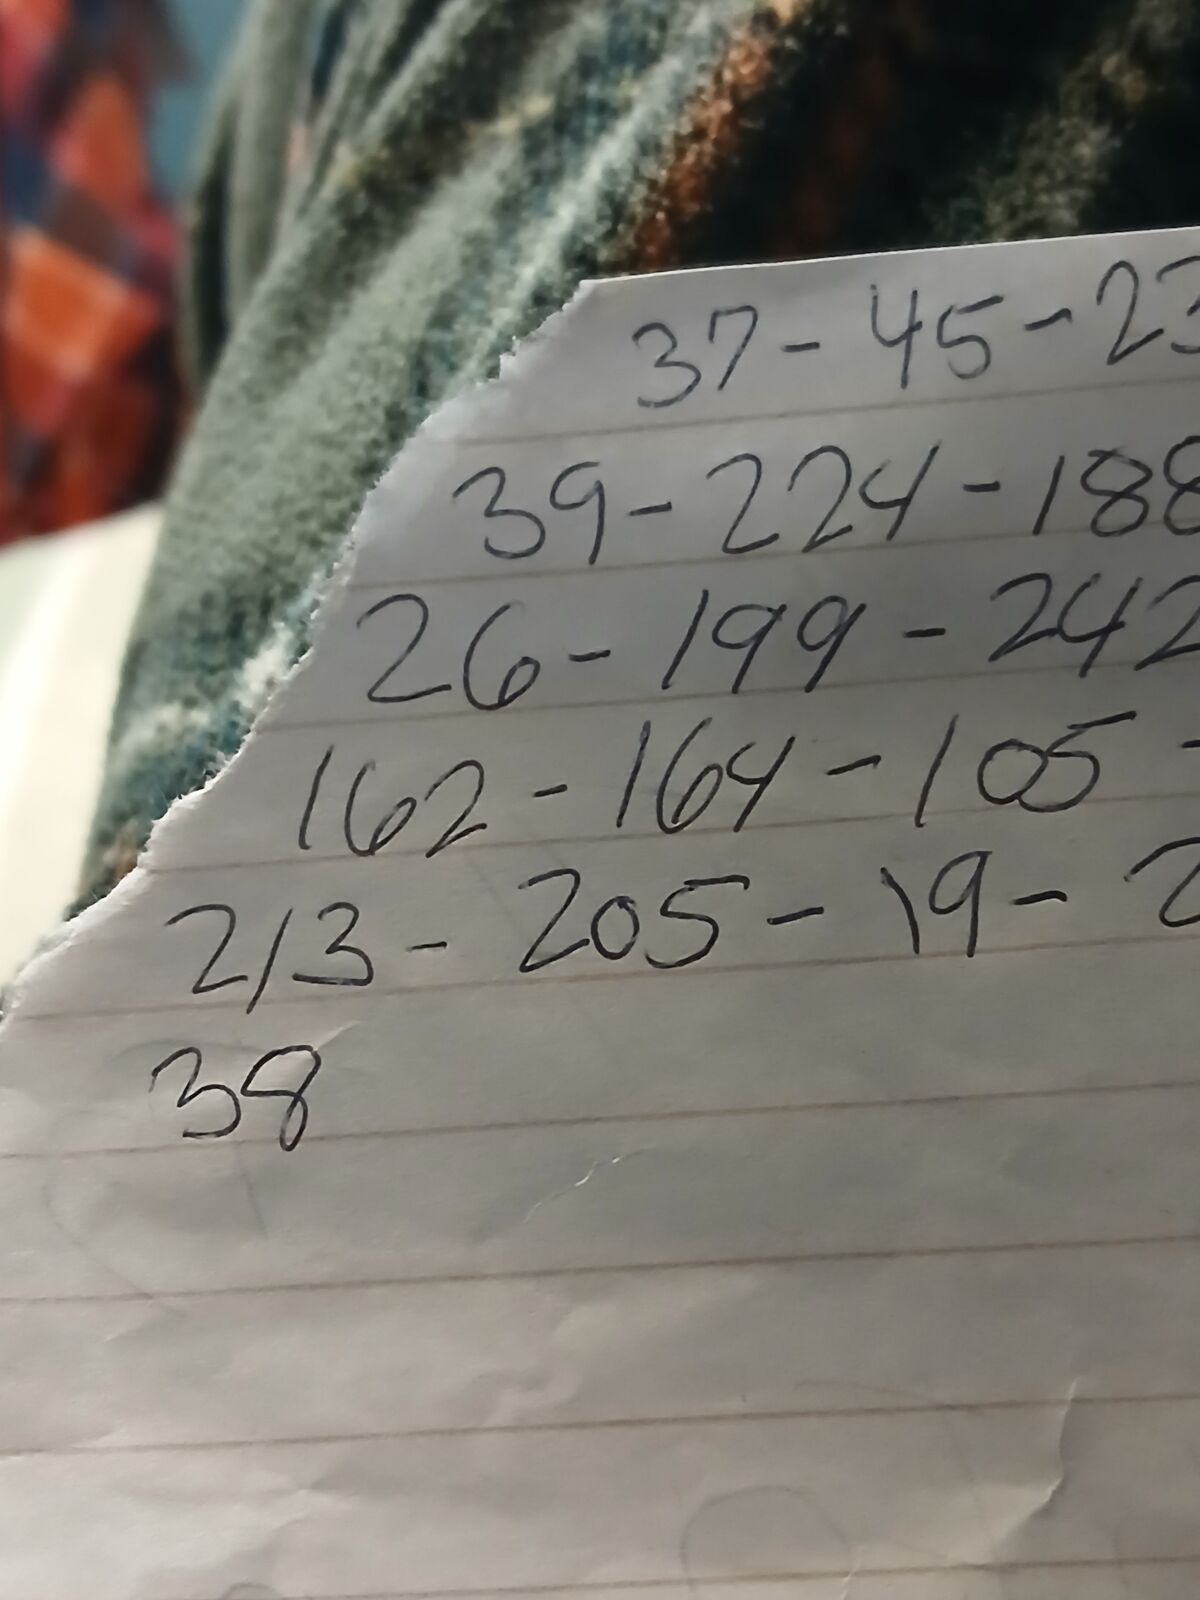 37 - 45 - 23
39 - 224 - 188
26 - 199 - 242
162 - 164 - 105 -
213 - 205 - 19 - 2
38